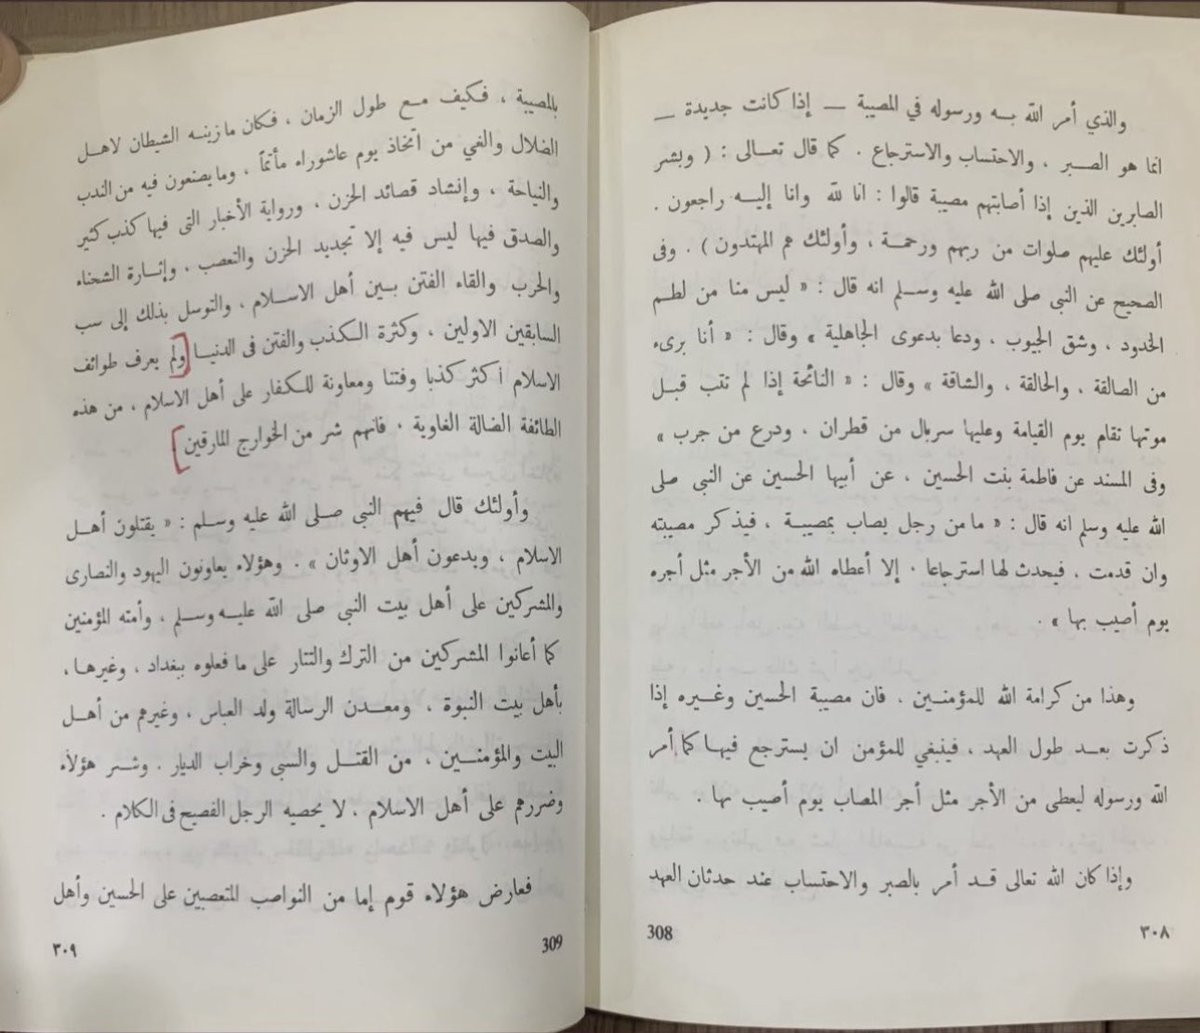 والذي أمر الله بـه ورسوله في المصيبة — إذا كانت جديدة —
انما هو الصبر ، والاحتساب والاسترجاع . كما قال تعالى : ( وبشر
الصابرين الذين إذا أصابتهم مصيبة قالوا : انا لله وانا إليه راجعون .
أولئك عليهم صلوات من ربهم ورحمة ، وأولئك هم المهتدون ) . وفى
الصحيح عن النبي صلى الله عليه وسلم انه قال : « ليس منا من لطم
الخدود ، وشق الجيوب ، ودعا بدعوى الجاهلية » وقال : « أنا برىء
من الصالقة ، والحالقة ، والشاقة » وقال : « النائحة إذا لم تتب قبل
موتها تقام يوم القيامة وعليها سربال من قطران ، ودرع من جرب »
وفى المسند عن فاطمة بنت الحسين ، عن أبيها الحسين عن النبي صلى
الله عليه وسلم انه قال : « ما من رجل يصاب بمصيبة ، فيذكر مصيبته
وان قدمت ، فيحدث لها استرجاعا . إلا أعطاه الله من الأجر مثل أجره
يوم أصيب بها » .
وهذا من كرامة الله للمؤمنين ، فان مصيبة الحسين وغيره إذا
ذكرت بعد طول العهد ، فينبغي للمؤمن ان يسترجع فيها كما أمر
الله ورسوله ليعطى من الأجر مثل أجر المصاب يوم أصيب بها .
وإذا كان الله تعالى قد أمر بالصبر والاحتساب عند حدثان العهد
308
٣٠٨
بالمصيبة ، فكيف مع طول الزمان ، فكان ما زينه الشيطان لاهل
الضلال والغي من اتخاذ يوم عاشوراء مأتماً ، وما يصنعون فيه من الندب
والنياحة ، وإنشاد قصائد الحزن ، ورواية الأخبار التى فيها كذب كثير
والصدق فيها ليس فيه إلا تجديد الحزن والتعصب ، وإثارة الشحناء
والحرب والقاء الفتن بين أهل الاسلام ، والتوسل بذلك إلى سب
السابقين الاولين ، وكثرة الكذب والفتن فى الدنيا [ولم يعرف طوائف
الاسلام أكثر كذبا وفتنا ومعاونة للكفار على أهل الاسلام ، من هذه
الطائفة الضالة الغاوية . فانهم شر من الخوارج المارقين]
وأولئك قال فيهم النبي صلى الله عليه وسلم : « يقتلون أهل
الاسلام ، ويدعون أهل الاوثان » . وهؤلاء يعاونون اليهود والنصارى
والمشركين على أهل بيت النبي صلى الله عليه وسلم ، وأمته المؤمنين
كما أعانوا المشركين من الترك والتتار على ما فعلوه ببغداد ، وغيرها ،
بأهل بيت النبوة ، ومعدن الرسالة ولد العباس ، وغيرهم من أهل
البيت والمؤمنين ، من القتل والسبى وخراب الديار . وشر هؤلاء
وضررهم على أهل الاسلام ، لا يحصيه الرجل الفصيح فى الكلام .
فعارض هؤلاء قوم إما من النواصب المتعصبين على الحسين وأهل
309
٣٠٩